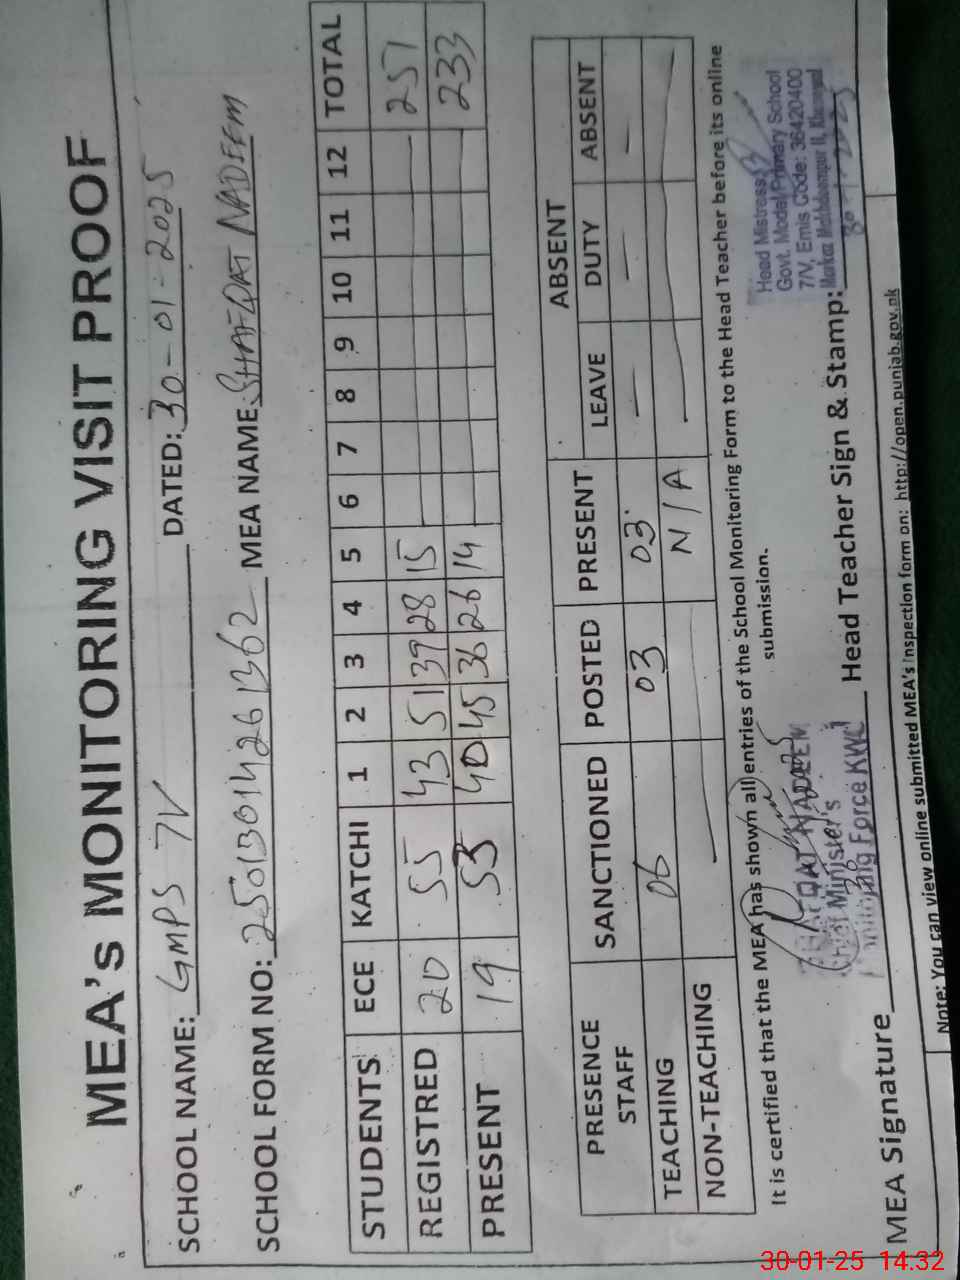 MEA's MONITORING VISIT PROOF
SCHOOL NAME: GMPS 7V DATED: 30-01-2025
SCHOOL FORM NO: 2501301426 1362 MEA NAME: SHAFQAT NADEEM
STUDENTS ECE KATCHI 1 2 3 4 5 6 7 8 9 10 11 12 TOTAL
REGISTRED 20 55 43 51 39 28 15 251
PRESENT 19 53 40 45 36 26 14 233
PRESENCE STAFF SANCTIONED POSTED PRESENT ABSENT
LEAVE DUTY ABSENT
TEACHING 06 03 03 — — —
NON-TEACHING N/A
It is certified that the MEA has shown all entries of the School Monitoring Form to the Head Teacher before its online
submission.
SHAFQAT NADEEM
Chief Minister's
Monitoring Force KWL
Head Mistress
Govt. Model Primary School
7/V, Emis Code: 36420400
Markaz Makhdoompur II, Khanewal
MEA Signature Head Teacher Sign & Stamp:
Note: You can view online submitted MEA's Inspection form on: http://open.punjab.gov.pk
30-01-25 14.32